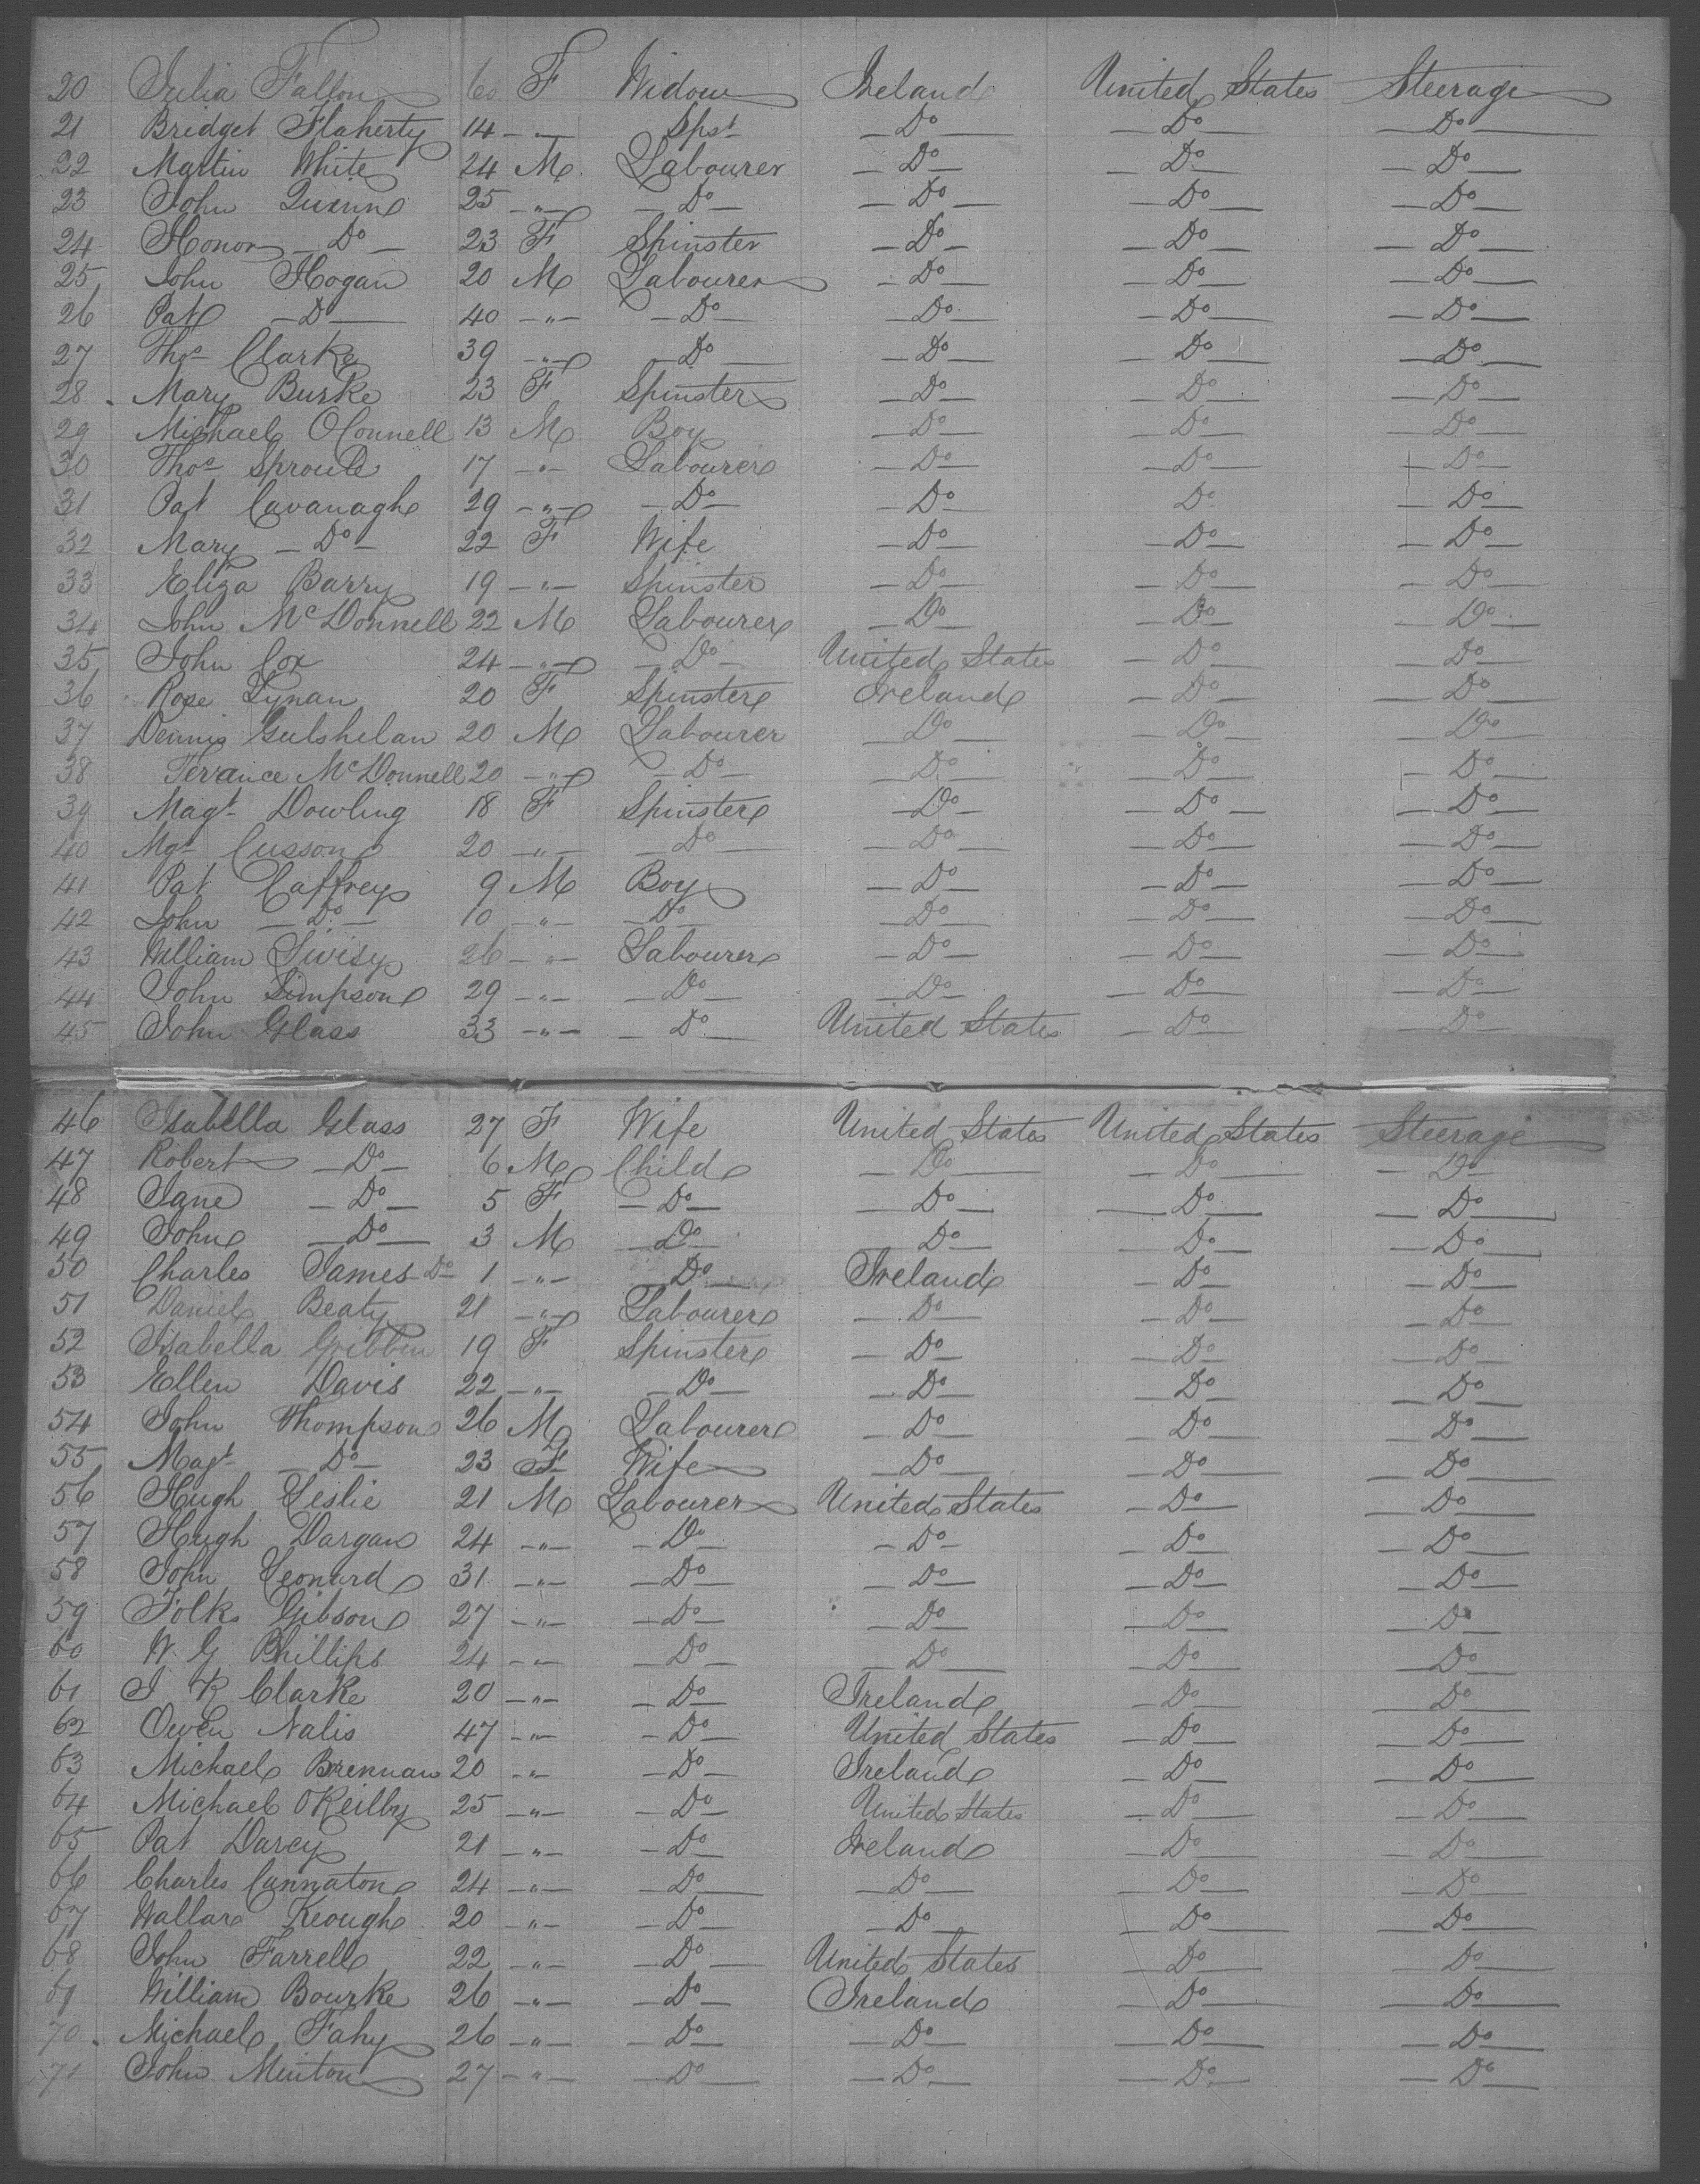 20 Julia Fallon 60 F Widow Ireland United States Steerage
21 Bridget Flaherty 14 — " — Spst — Do — — Do — — Do —
22 Martin White 24 M Labourer — Do — — Do — — Do —
23 John Quinn 25 — " — — Do — — Do — — Do — — Do —
24 Honor — Do — 23 F Spinster — Do — — Do — — Do —
25 John Hogan 20 M Labourer — Do — — Do — — Do —
26 Pat — Do — 40 — " — — Do — — Do — — Do — — Do —
27 Thos Clarke 39 — " — — Do — — Do — — Do — — Do —
28 Mary Burke 23 F Spinster — Do — — Do — — Do —
29 Michael OConnell 13 M Boy — Do — — Do — — Do —
30 Thos Sproule 17 — " — Labourer — Do — — Do — — Do —
31 Pat Cavanagh 29 — " — — Do — — Do — Do — Do —
32 Mary — Do — 22 F Wife — Do — — Do — — Do —
33 Eliza Barry 19 — " — Spinster — Do — — Do — — Do —
34 John McDonnell 22 M Labourer — Do — — Do — — Do —
35 John Cox 24 — " — — Do — United States — Do — — Do —
36 Rose Lynan 20 F Spinster Ireland — Do — — Do —
37 Dennis Gulshelan 20 M Labourer — Do — — Do — — Do —
38 Terrance McDonnell 20 — " — — Do — — Do — — Do — — Do —
39 Magt Dowling 18 F Spinster — Do — — Do — — Do —
40 Mgt Cusson 20 — " — — Do — — Do — — Do — — Do —
41 Pat Caffrey 9 M Boy — Do — — Do — — Do —
42 John — Do — 10 — " — — Do — — Do — — Do — — Do —
43 William 26 — " — Labourer — Do — — Do — — Do —
44 John Simpson 29 — " — — Do — — Do — — Do — — Do —
45 John Glass 33 — " — — Do — United States — Do — — Do —
46 Isabella Glass 27 F Wife United States United States Steerage
47 Robert — Do — 6 M Child — Do — — Do — — Do —
48 Jane — Do — 5 F — Do — — Do — — Do — — Do —
49 John — Do — 3 M — Do — — Do — — Do — — Do —
50 Charles James Do 1 — " — — Do — Ireland — Do — — Do —
51 Daniel Beaty 21 — " — Labourer — Do — — Do — — Do —
52 Isabella Gribbin 19 F Spinster — Do — — Do — — Do —
53 Ellen Davis 22 — " — — Do — — Do — — Do — — Do —
54 John Thompson 26 M Labourer — Do — — Do — — Do —
55 Magt — Do — 23 F Wife — Do — — Do — — Do —
56 Hugh Leslie 21 M Labourer United States — Do — — Do —
57 Hugh Dargan 24 — " — — Do — — Do — — Do — — Do —
58 John Leonard 31 — " — — Do — — Do — — Do — — Do —
59 Folks Gibson 27 — " — — Do — — Do — — Do — — Do —
60 W. G Phillips 24 — " — — Do — — Do — — Do — — Do —
61 J R Clarke 20 — " — — Do — Ireland — Do — — Do —
62 Owen Nalis 47 — " — — Do — United States — Do — — Do —
63 Michael Brennan 20 — " — — Do — Ireland — Do — — Do —
64 Michael OReilly 25 — " — — Do — United States — Do — — Do —
65 Pat Darcy 21 — " — — Do — Ireland — Do — — Do —
66 Charles Cannaton 24 — " — — Do — — Do — — Do — — Do —
67 Wallace Keough 20 — " — — Do — — Do — — Do — — Do —
68 John Farrell 22 — " — — Do — United States — Do — — Do —
69 William Bourke 26 — " — — Do — Ireland — Do — — Do —
70 Michael Fahy 26 — " — — Do — — Do — — Do — — Do —
71 John Minton 27 — " — — Do — — Do — — Do — — Do —